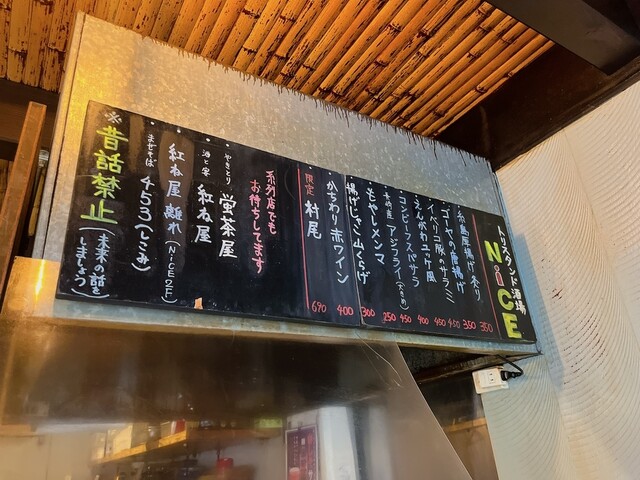 トリスタンド酒場
NiCE
糸島厚揚げ炙り 350
ゴーヤの唐揚げ 350
イベリコ豚のサラミ 450
えんがわユッケ風 450
コンビーフスパサラ 400
長崎産アジフライ 450
もやしメンマ 250
揚げじゃこ山くらげ 300
かちわり赤ワイン 400
限定 村尾 690
系列店でも
お待ちしてます
やきとり 堂茶屋
酒と宴 紅ね屋
紅ね屋 離れ (NiCE2F)
まぜそば 453(しこみ)
※昔話禁止(未来の話をしましょう)